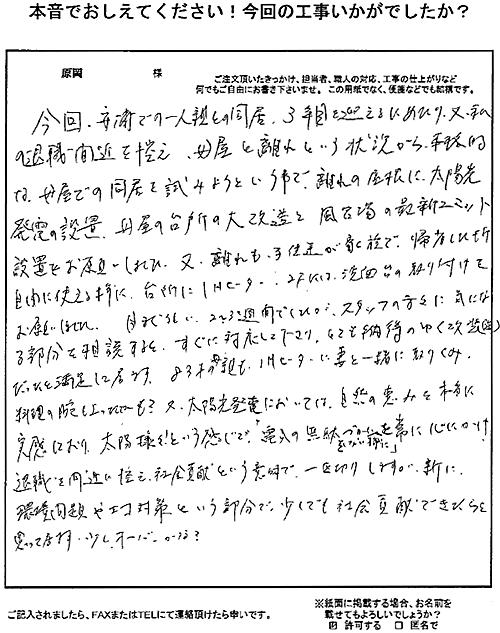 本音でおしえてください！今回の工事いかがでしたか？
原岡 様
ご注文頂いたきっかけ、担当者、職人の対応、工事の仕上がりなど
何でもご自由にお書き下さいませ。この用紙でなく、便箋などでも結構です。
今回、 での一人親との同居、3年目を迎えるにあたり、又、私
の退職間近を控え、母屋と離れという状況から、本格的
な、母屋での同居を試みようという事で、離れの屋根に、太陽光
発電の設置、母屋の台所の大改造と風呂場の最新ユニット
設置をお願いしました。又、離れも、 帰省した折
自由に使える様に、台所にIHヒーター、2Fには、洗面台の取り付けを
お願いしました。 2〜3週間でしたが、スタッフの方々に気にな
る部分を相談すると、すぐに対応して下さり、とても納得のゆく改造
だったと満足して居ます。83才の母親も、IHヒーターに妻と一緒に取りくみ、
料理の腕も上ったかも？又、太陽光発電においては、自然の恵みを本当に
実感しており、太陽様々という感じで、「電気の無駄づかいをしない様に」を常に心にかけ、
退職を間近に控え、社会貢献という意味で、一区切りしますが、新に、
環境問題やエコ対策という部分で、少しでも社会貢献できたらと
思って居ます。少しオーバーかな？
ご記入されましたら、FAXまたはTELにて連絡頂けたら幸いです。
※紙面に掲載する場合、お名前を
載せてもよろしいでしょうか？
☑ 許可する □ 匿名で